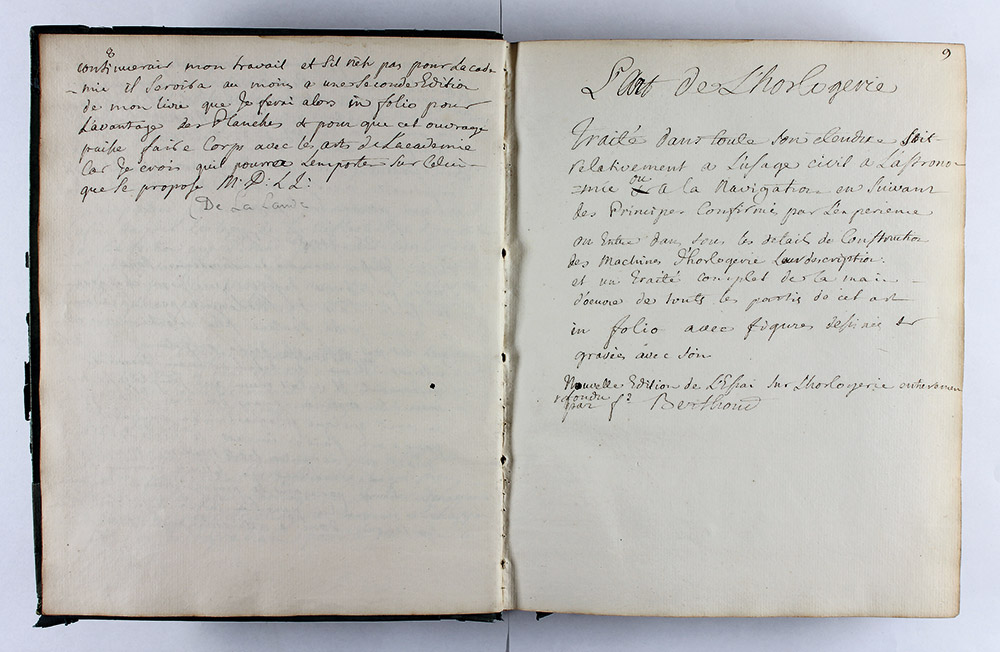 8
continuerais mon travail et Sil n'est pas pour Lacade
-mie il Servira au moins a une Seconde Edition
de mon livre que Je ferai alors in folio pour
L'avantage des Planches & pour que cet ouvrage
puisse faire Corps avec les arts de L'academie
Car Je crois quil pourra L'emporter Sur Celui
que Se propose Mr. D: L L:
(De La Lande
9
L'Art de L'horlogerie
Traité dans toute Son étendue Soit
relativement a L'usage civil a L'astrono
=mie ou a la Navigation en Suivant
des Principes Confirmés par L'experience
on Entre dans tous les details de Construction
des Machines d'horlogerie Leur description:
et un Traité complet de la main
d'oeuvre de touts les partis de cet art
in folio avec figures dessinées &
gravées avec Soin
Nouvelle Edition de L'Essai Sur L'horlogerie entierement
refondu
par f? Berthoud